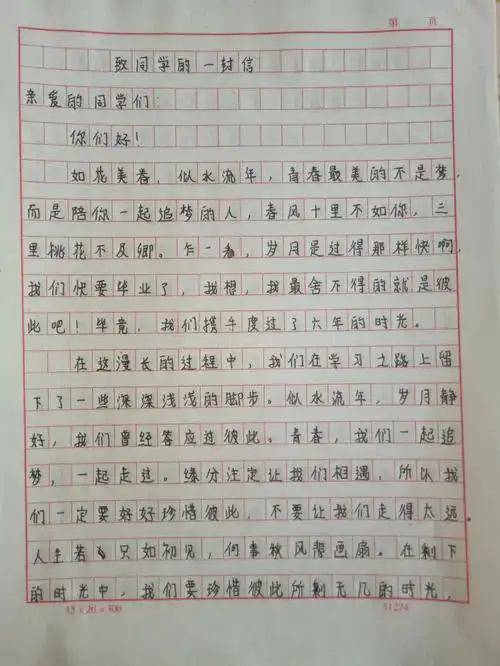 第 页
致同学的一封信
亲爱的同学们：
你们好！
如花美眷，似水流年，青春最美的不是梦，
而是陪你一起追梦的人，春风十里不如你，三
里桃花不及卿。乍一看，岁月是过得那样快啊，
我们快要毕业了，我想，我最舍不得的就是彼
此吧！毕竟，我们携手度过了六年的时光。
在这漫长的过程中，我们在学习之路上留
下了一些深深浅浅的脚步。似水流年，岁月静
好，我们曾经答应过彼此。青春，我们一起追
梦，一起走过。缘分注定让我们相遇，所以我
们一定要好好珍惜彼此，不要让我们走得太远。
人生若只如初见，何事秋风悲画扇。在剩下
的时光中，我们要珍惜彼此所剩无几的时光，
15×20＝300